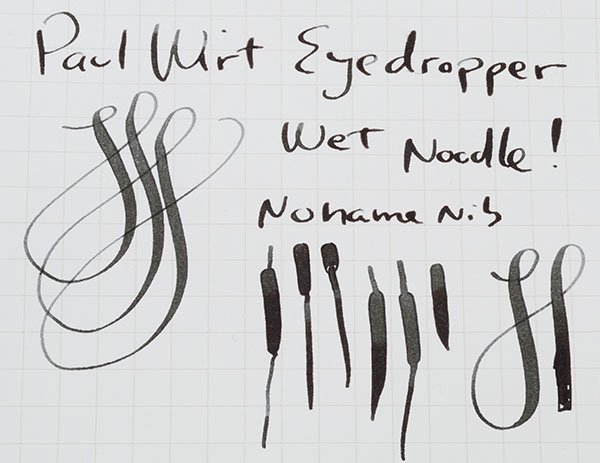 Paul Wirt Eyedropper
Wet Noodle!
Noname Nib